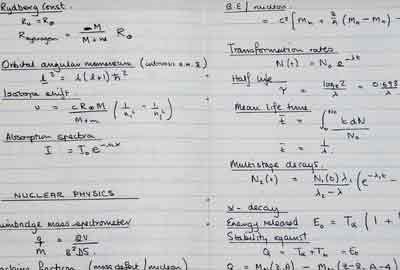 Rydberg Const.
R₀ = R∞
R hydrogen = M / M+m R∞
Orbital angular momentum (intrinsic
l² = l(l+1)ħ²
Isotope shift
υ = cR∞M / M+m (1/n₁² − 1/n₂²)
Absorption spectra
I = I₀e
NUCLEAR PHYSICS
mass spectrometer
q/M =
fraction (mass defect / nucleon)
B.E / nucleon
= c² [Mn + (Mn − Mn) −
Transformation rates
N(t) = N₀e^−λt
Half life
τ = loge2 / λ = 0.693
Mean life time
t̄ = ∫₀^N₀ t dN / N₀
t̄ = 1/λ
Multistage decays.
N₂(t) = N₁(0) λ₁ / λ₂ − λ (e^−λ,t −
α - decay
Energy released E₀ = Tα (1 +
Stability against
Q = Tα + Tb = E₀
Q = (Z,A) − (Z−2, A−4)